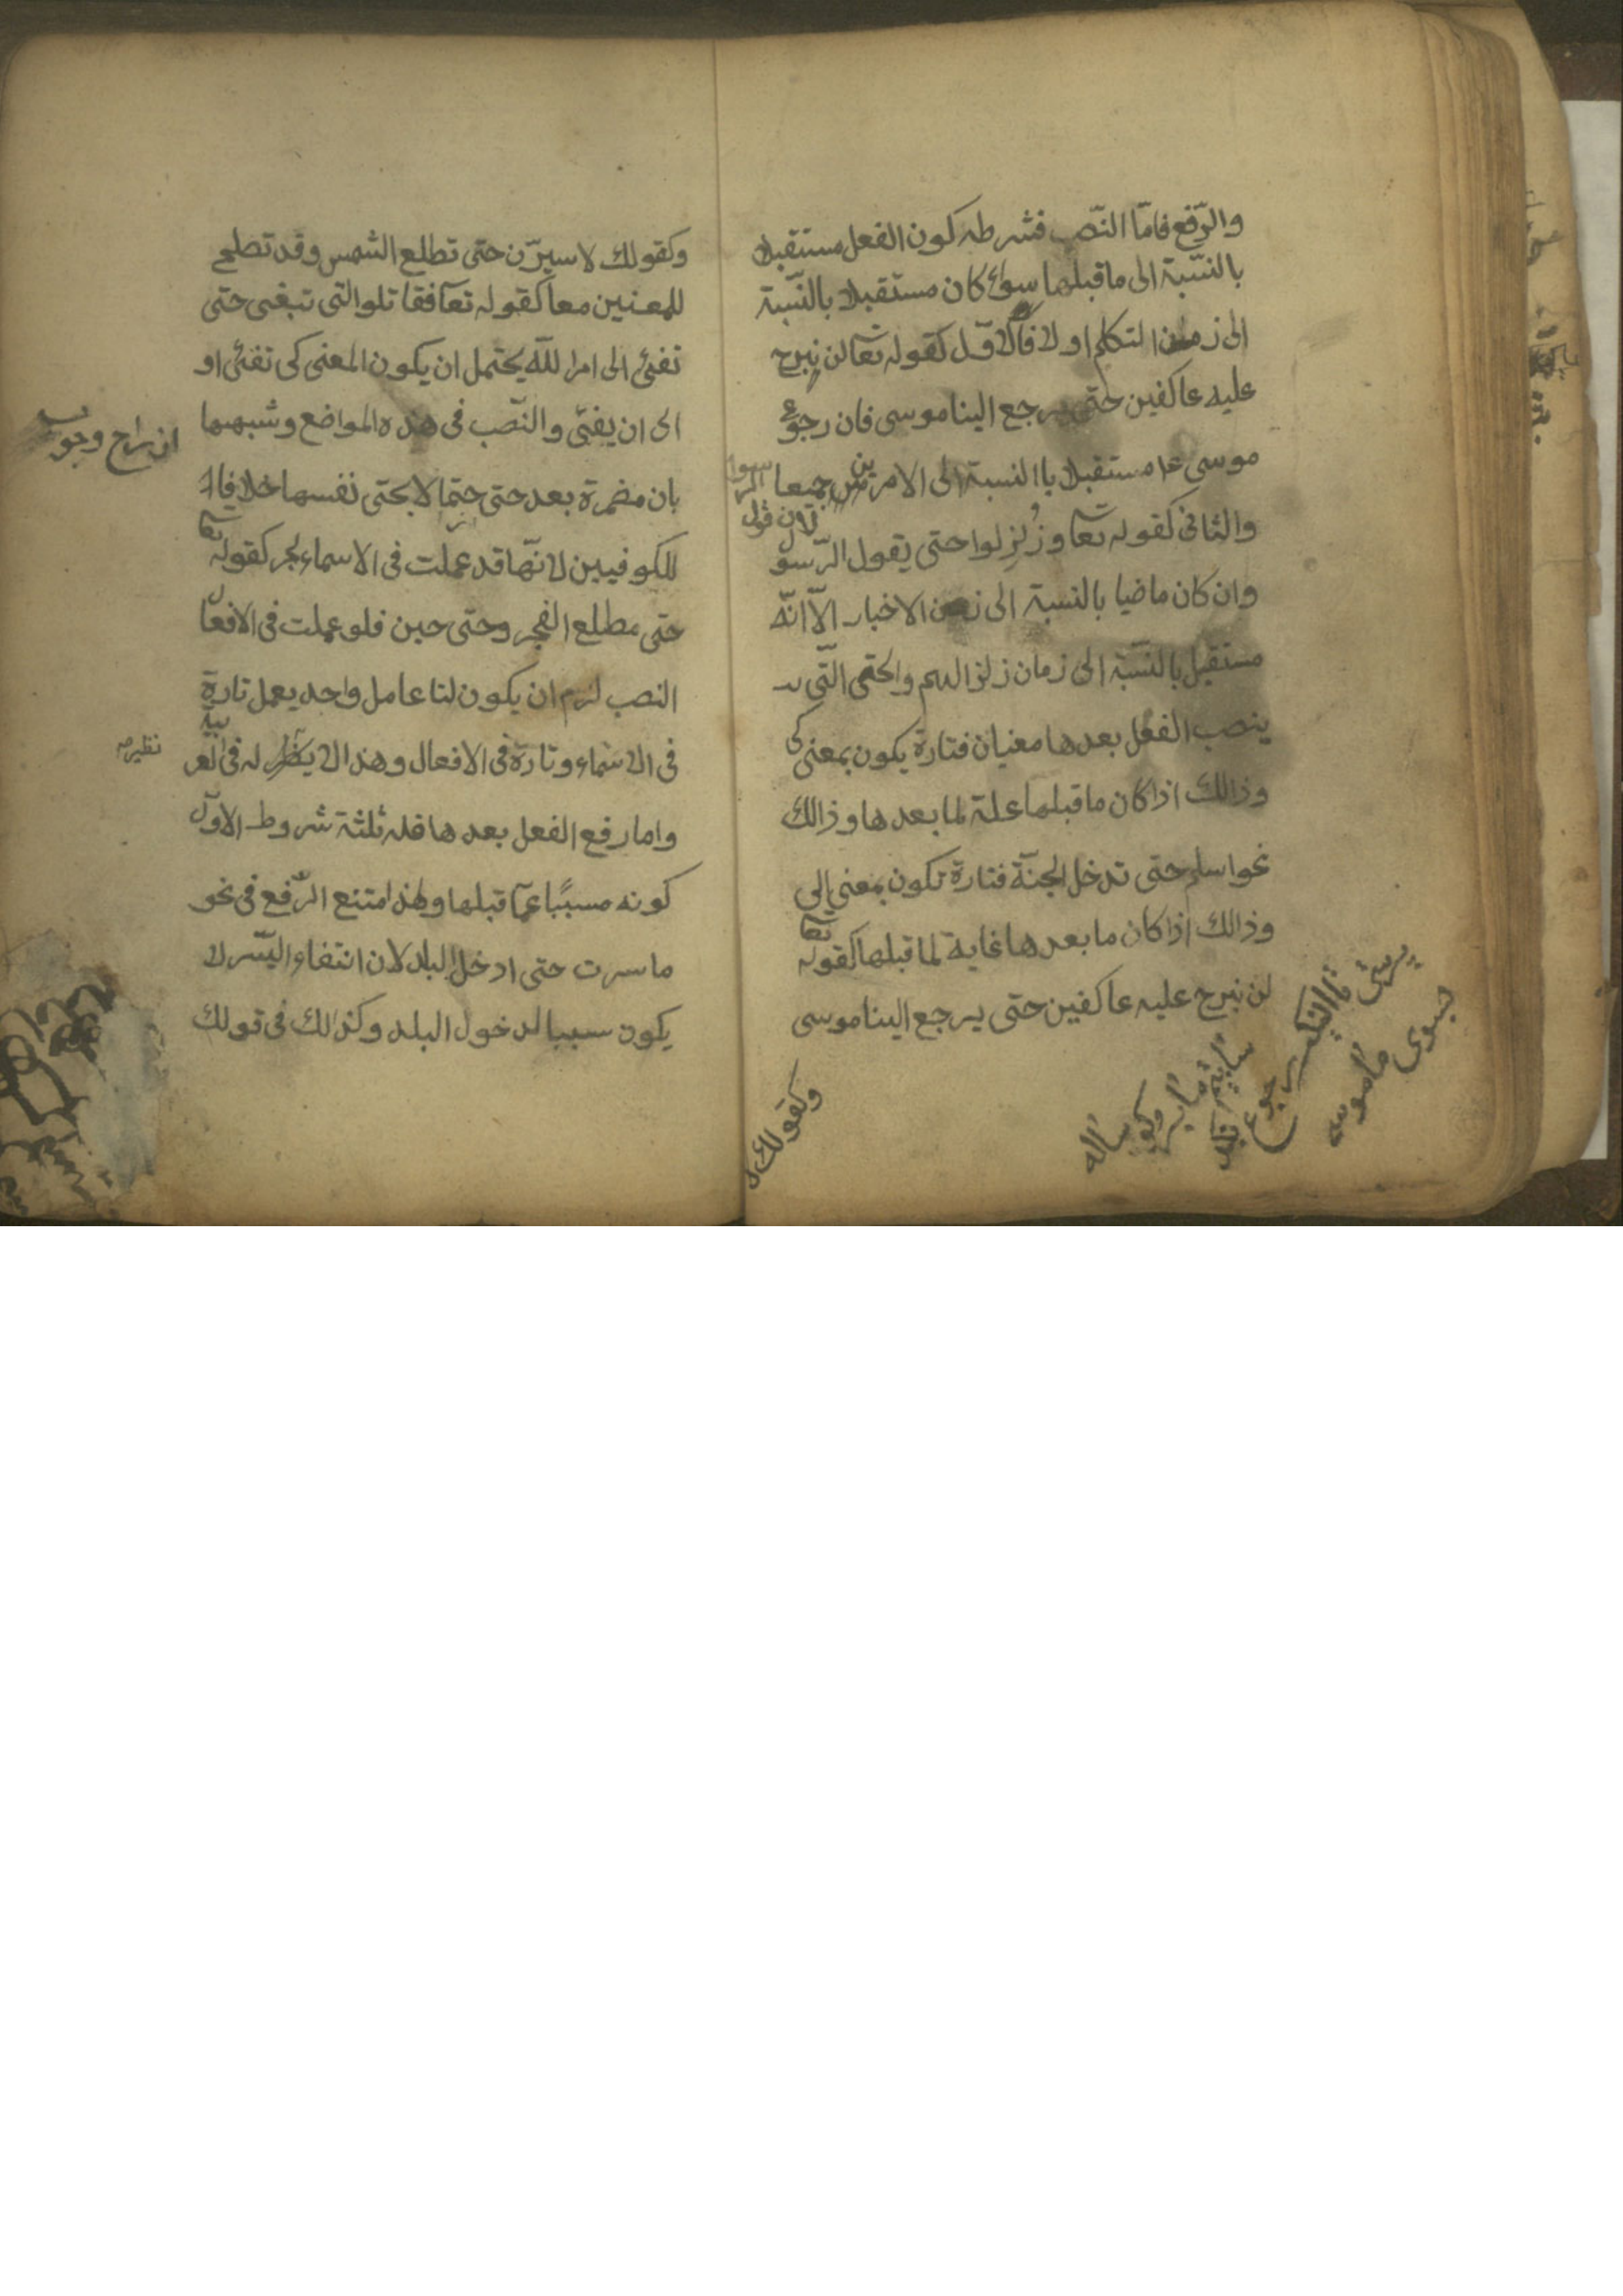 والرّفع فامّا النّصب فشرطه كون الفعل مستقبلا
بالنسّبة الى ما قبلها سوائ كان مستقبلا بالنّسبة
الى زمان التكلم او لا فاالاوّل كقوله تعا لن نبرح
عليه عاكفين حتى يرجع الينا موسى فان رجوع
موسى مستقبلا باالنسبة الى الامرين جميعا
والثانى كقوله تعا وزُلزِلوا حتى يقول الرّسول
لان قول الرسول
وان كان ماضيا بالنسبة الى زمن الاخبار الاّ انّه
مستقبل بالنسّبة الى زمان زلزالهم والحتى التّى
ينصب الفعل بعدها معنيان فتارة يكون بمعنى كى
وذالك اذا كان ما قبلها علة لما بعدها وذالك
نحو اسلم حتى تدخل الجنّة فتارة تكون بمعنى الى
وذالك اذا كان ما بعدها غاية لما قبلها كقوله تعا
لن نبرح عليه عاكفين حتى يرجع الينا موسى
وكقولك
وكقولك لاسيرّن حتى تطلع الشمس وقد تصلح
للمعنين معا كقوله تعا فقاتلوا التى تبغى حتى
تفئ الى امر اللّه يحتمل ان يكون المعنى كى تفئ او
الى ان يفئ والنّصب فى هذه المواضع وشبهها
بان مضمرة بعد حتى حتما لا بحتى نفسها خلافا
للكوفيين لانّها قد عملت فى الاسماء لجر كقوله تعا
حتى مطلع الفجر وحتى حين فلو عملت فى الافعال
النصب لزم ان يكون لنا عامل واحد يعمل تارة
فى الاسماء وتارة فى الافعال وهذا لا نظير له فى العربية
نظير
واما رفع الفعل بعدها فله ثلثة شروط الاوّل
كونه مسببًا عمّا قبلها ولهذا امتنع الرّفع فى نحو
ما سرت حتى ادخل البلد لان انتفاء السّير لا
يكون سببا لدخول البلد وكذالك فى قولك